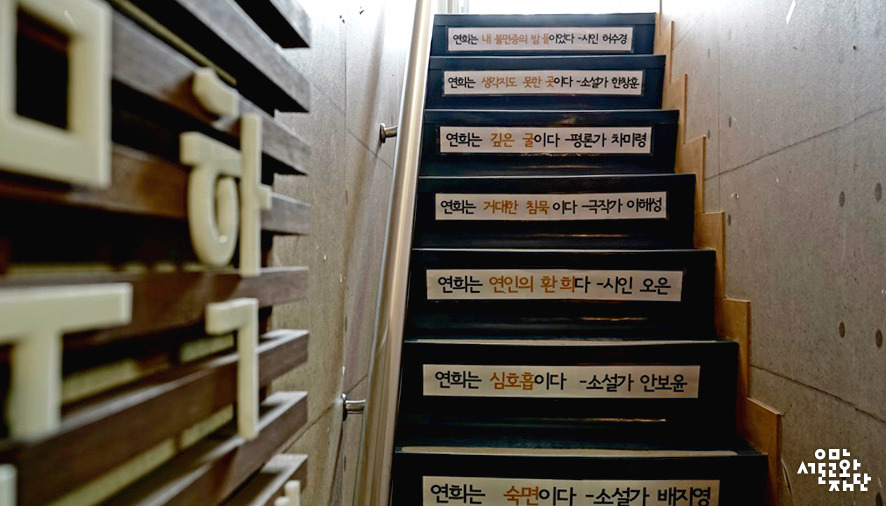 연희는 내 불면증의 밤들이었다 -시인 허수경
연희는 생각지도 못한 곳이다 -소설가 한창훈
연희는 깊은 굴이다 -평론가 차미령
연희는 거대한 침묵이다 -극작가 이해성
연희는 연인의 환희다 -시인 오은
연희는 심호흡이다 -소설가 안보윤
연희는 숙면이다 -소설가 배지영
학
서울문화재단